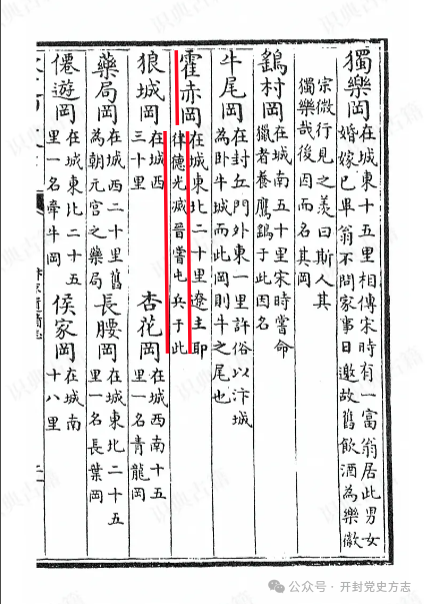 獨樂岡
在城東十五里相傳宋時有一富翁居此男女
婚嫁已畢翁不問家事日邀故舊飲酒為樂徽
宗微行見之羡曰斯人其
獨樂哉後因而名其岡
鷂村岡
在城南五十里宋時嘗命
獵者養鷹鷂于此因名
牛尾岡
在封丘門外東一里許俗以汴城
為卧牛城而此岡則牛之尾也
霍赤岡
在城東北二十里遼主耶
律德光滅晉嘗屯兵于此
狼城岡
在城西
三十里
杏花岡
在城西南十五
里一名青龍岡
藥局岡
在城西二十里舊
為朝元宮之藥局
長腰岡
在城東北二十五
里一名長葉岡
僊遊岡
在城東北二十五
里一名牽牛岡
侯家岡
在城南
十八里
公众号 · 开封党史方志